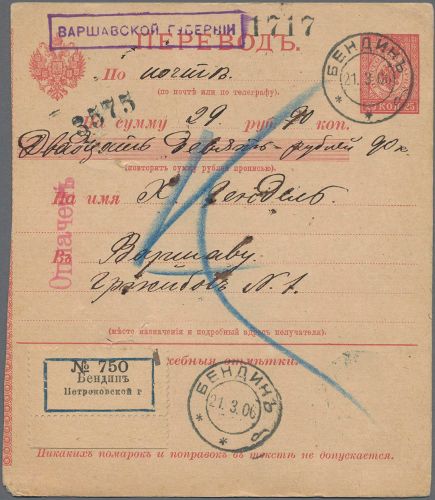 ВАРШАВСКОЙ ГУБЕРНІИ
1717
ПЕРЕВОДЪ.
БЕНДИНЪ
21.3.06
25 КОП 25
По почтѣ.
(по почтѣ или по телеграфу).
3575
На сумму 29 руб. 90 коп.
Двадцать Девять рублей 90 к.
(повторить сумму рублей прописью).
На имя Х.
Означенъ
Въ Варшаву
Гржибовъ N. 1.
(мѣсто назначенія и подробный адресъ получателя).
Служебныя отмѣтки.
№ 750
Бендинъ
Петроковской г
БЕНДИНЪ
21.3.06
Никакихъ помарокъ и поправокъ въ текстѣ не допускается.